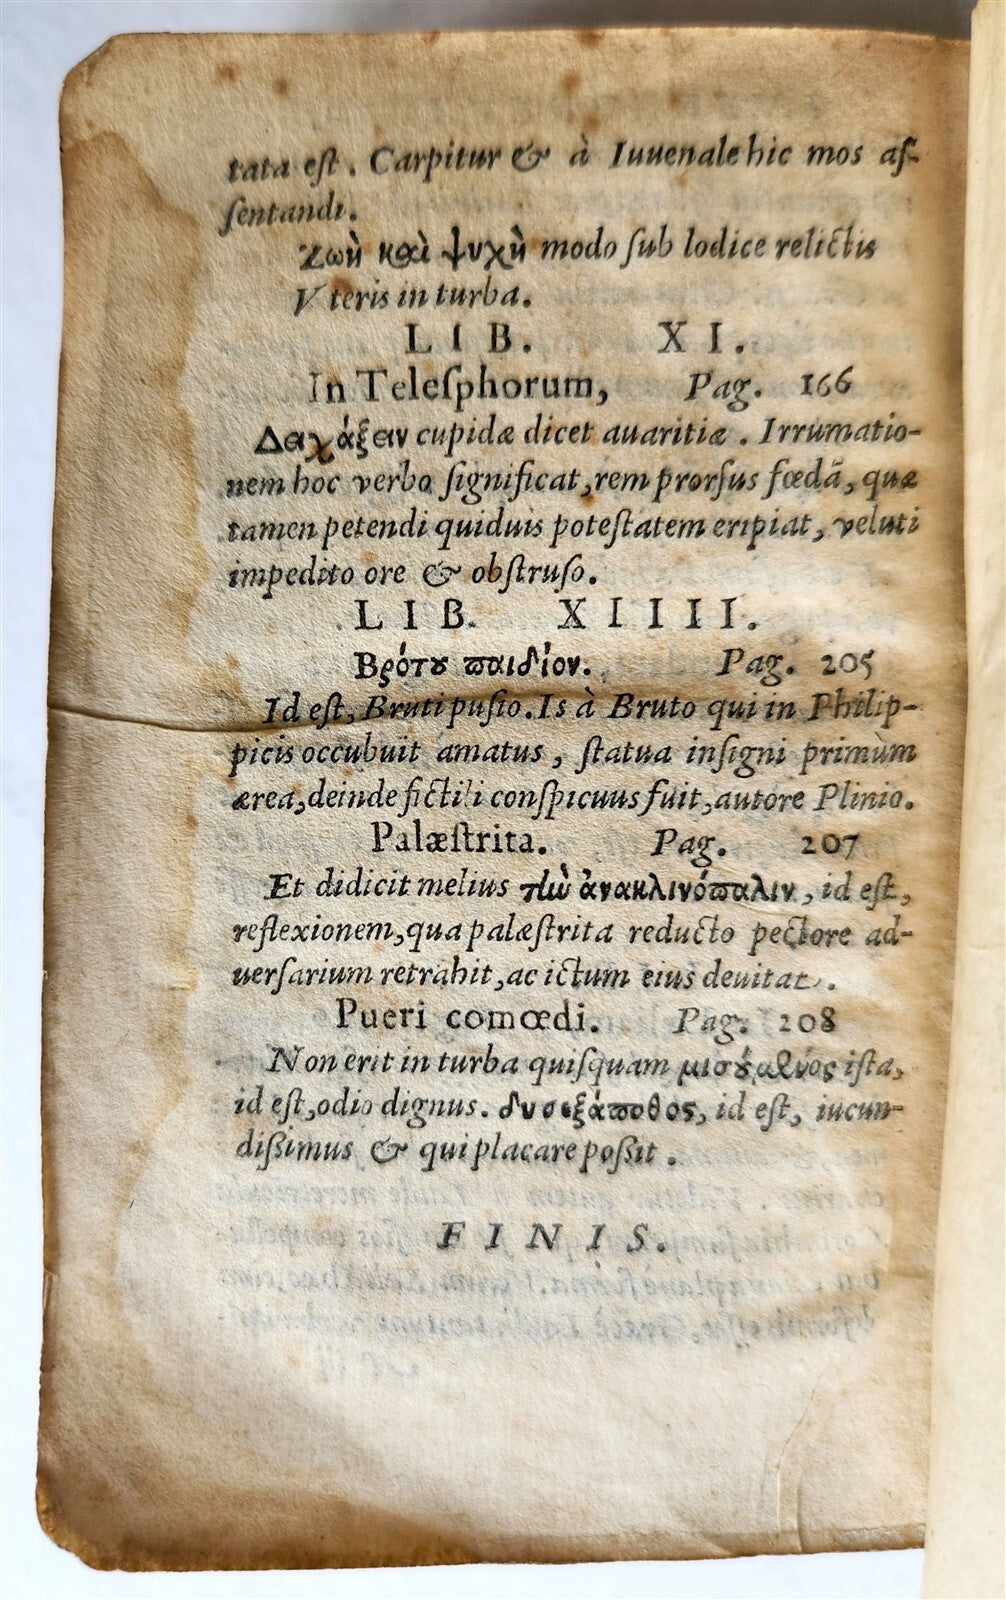 tata eſt. Carpitur & à Iuuenale hic mos aſ-
ſentandi.
Ζωὴ καὶ ψυχὴ modo ſub lodice relictis
Vteris in turba.
LIB. XI.
In Teleſphorum, Pag. 166
Δειχάξειν cupidæ dicet auaritiæ. Irrumatio-
nem hoc verbo ſignificat, rem prorſus fœdā, quæ
tamen petendi quiduis poteſtatem eripiat, veluti
impedito ore & obſtruſo.
LIB. XIIII.
Βρότȣ παιδίον. Pag. 205
Id eſt, Bruti puſio. Is à Bruto qui in Philip-
picis occubuit amatus, ſtatua inſigni primùm
ærea, deinde fictili conſpicuus fuit, autore Plinio.
Palæſtrita. Pag. 207
Et didicit melius τὴν ἀνακλινόπαλιν, id eſt,
reflexionem, qua palæſtrita reducto pectore ad-
uerſarium retrahit, ac ictum eius deuitat.
Pueri comœdi. Pag. 208
Non erit in turba quiſquam iſta,
id eſt, odio dignus. δυσεξάποθος, id eſt, iucun-
dißimus & qui placare poßit.
FINIS.